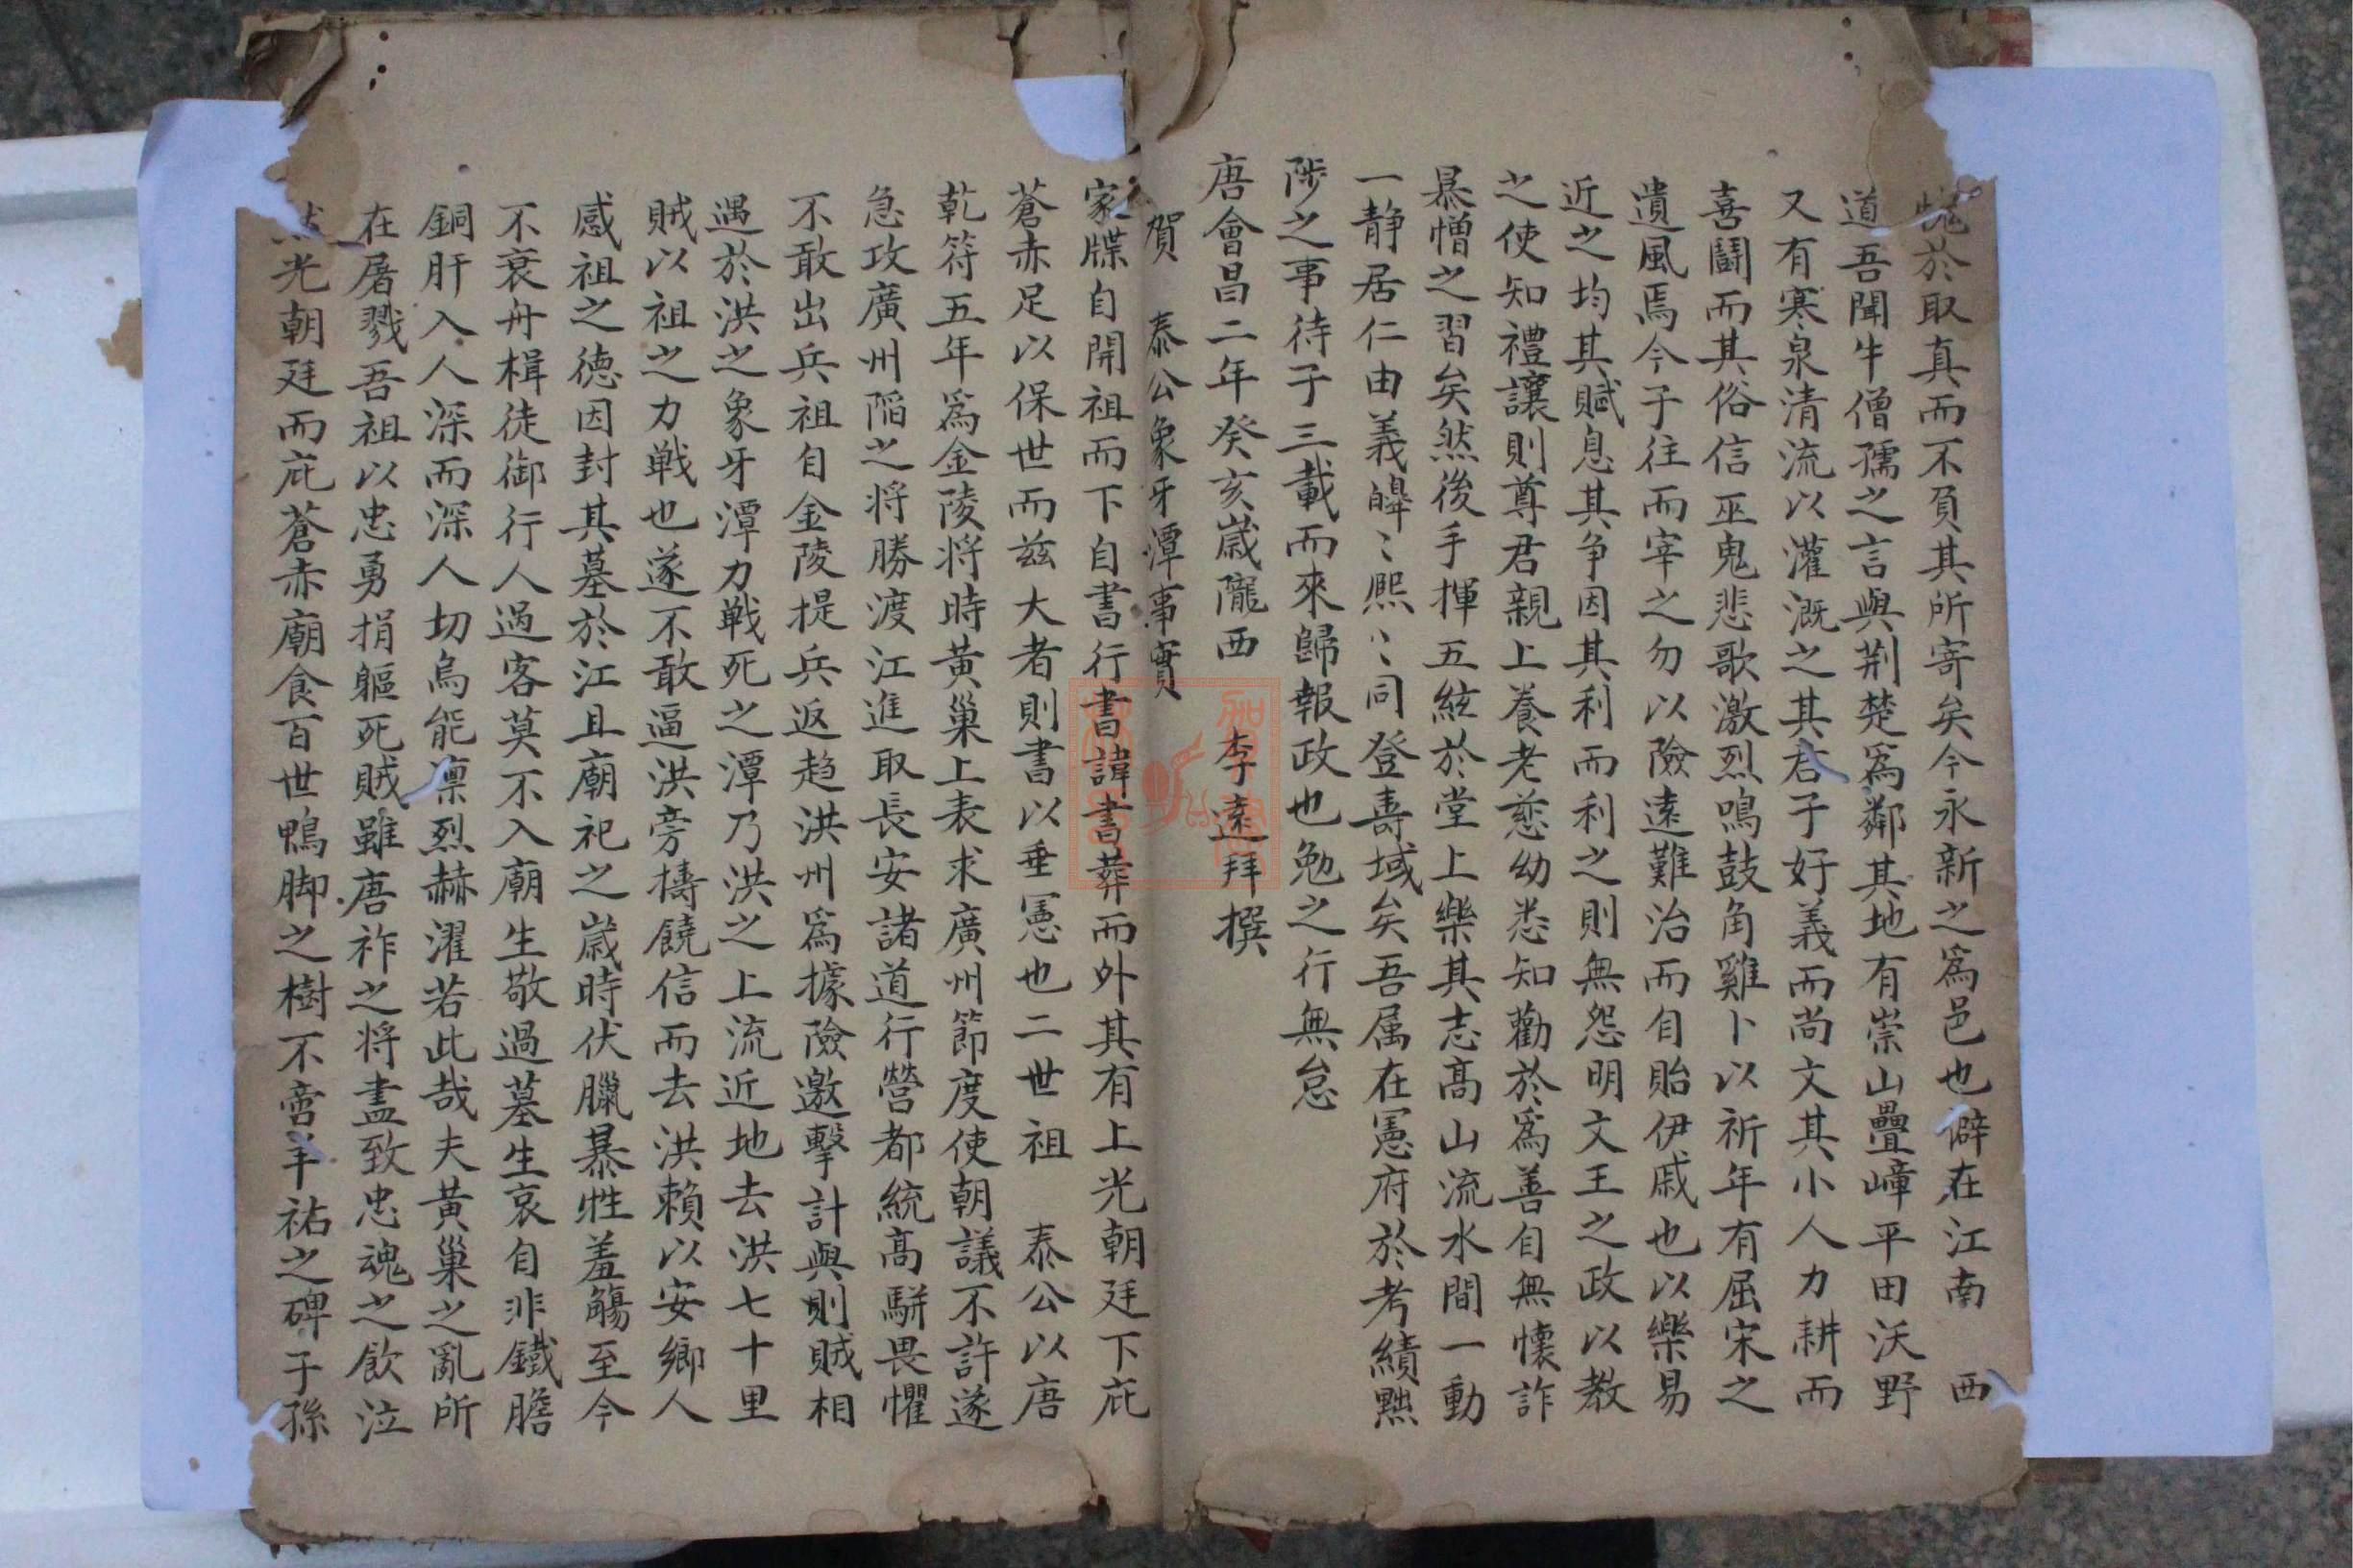 於取真而不負其所寄矣今永新之爲邑也僻在江南 西
道吾聞牛僧孺之言與荆楚爲鄰其地有崇山疊嶂平田沃野
又有寒泉清流以灌溉之其君子好義而尚文其小人力耕而
喜鬪而其俗信巫鬼悲歌激烈鳴鼓角雞卜以祈年有屈宋之
遺風焉今子往而宰之勿以險遠難治而自貽伊戚也以樂易
近之均其賦息其争因其利而利之則無怨明文王之政以教
之使知禮讓則尊君親上養老慈幼悉知勸於爲善自無懷詐
暴憎之習矣然後手揮五絃於堂上樂其志髙山流水間一動
一静居仁由義皥〻熈〻同登壽域矣吾属在憲府於考績黜
陟之事待子三載而來歸報政也勉之行無怠
唐會昌二年癸亥嵗隴西 李遠拜撰
賀 泰公象牙潭事實
家牒自開祖而下自書行書諱書葬而外其有上光朝廷下庇
蒼赤足以保世而兹大者則書以垂憲也二世祖 泰公以唐
乾符五年爲金陵将時黃巢上表求廣州節度使朝議不許遂
急攻廣州陷之将勝渡江進取長安諸道行營都統髙駢畏懼
不敢出兵祖自金陵提兵返趋洪州爲據險邀擊計與則賊相
遇於洪之象牙潭力戦死之潭乃洪之上流近地去洪七十里
賊以祖之力戦也遂不敢逼洪旁擣饒信而去洪賴以安鄉人
感祖之徳因封其墓於江且廟祀之嵗時伏臘暴牲羞觴至今
不衰舟楫徒御行人過客莫不入廟生敬過墓生哀自非鐵膽
銅肝入人深而深人切烏能凛烈赫濯若此哉夫黃巢之亂所
在屠戮吾祖以忠勇捐軀死賊雖唐祚之将盡致忠魂之飲泣
然光朝廷而庇蒼赤廟食百世鴨脚之樹不啻羊祜之碑子孫